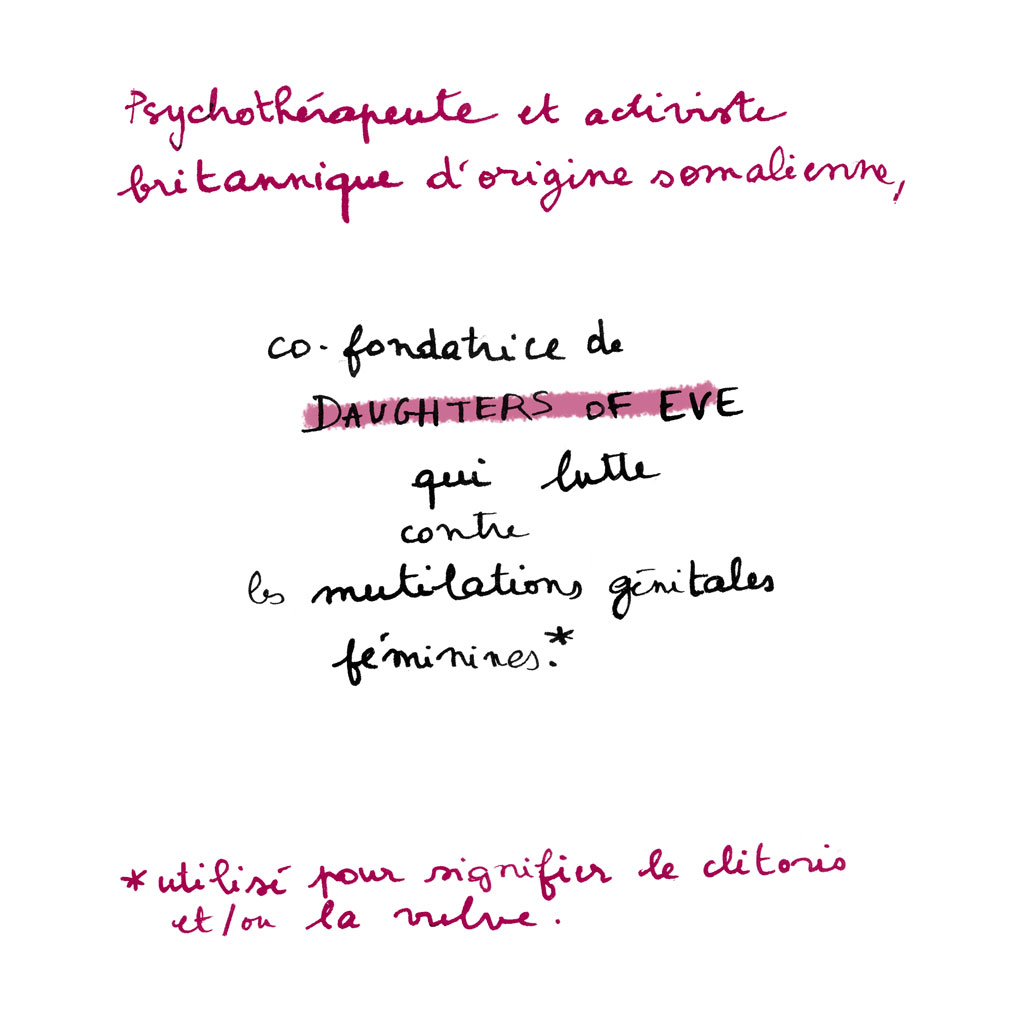 Psychothérapeute et activiste
britannique d'origine somalienne,
co-fondatrice de
DAUGHTERS OF EVE
qui lutte
contre
les mutilations génitales
féminines.*
*utilisé pour signifier le clitoris
et/ou la vulve.